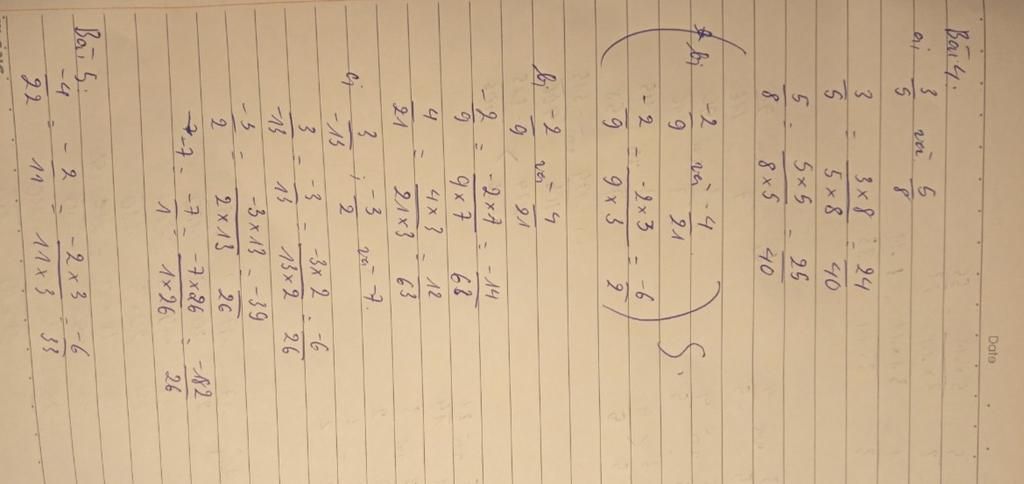 Date
Bài 4.
a, 3/5 và 5/8
3/5 = 3×8/5×8 = 24/40
5/8 = 5×5/8×5 = 25/40
b, -2/9 và -4/21
-2/9 = -2×3/9×3 = -6/2
S.
b, -2/9 và 4/21
-2/9 = -2×7/9×7 = -14/63
4/21 = 4×3/21×3 = 12/63
c, 3/-13 ; -3/2 và -7.
3/-13 = -3/13 = -3×2/13×2 = -6/26
-3/2 = -3×13/2×13 = -39/26
-7 = -7/1 = -7×26/1×26 = -182/26
Bài 5.
-4/22 = -2/11 = -2×3/11×3 = -6/33